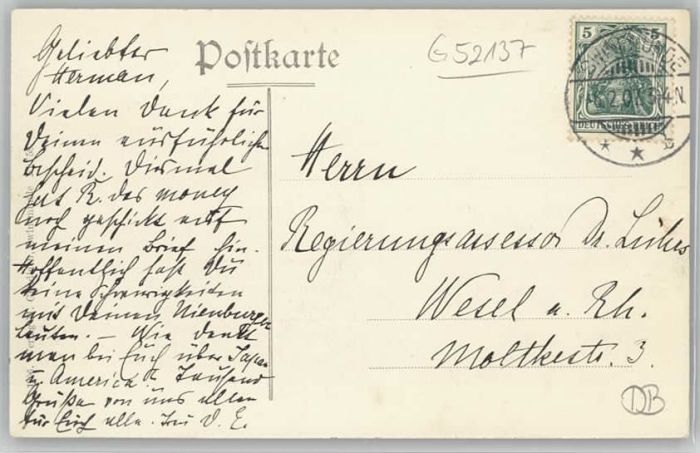 Geliebter
Herman,
Vielen Dank für
Deinen ausführlichen
Bescheid. Diesmal
hat R. das money
noch geschickt auf
meinen Brief hin.
Hoffentlich hast Du
keine Schwierigkeiten
mit Deinen Nienburger
Leuten. – Wie denkt
man bei Euch über Japan
u. America? Tausend
Grüße von uns allen
für Euch alle. Treu D. E.
Postkarte
G52137
5 5
DEUTSCHES REICH
Herrn
Regierungsassessor Dr. Lühus
Wesel a. Rh.
Moltkestr. 3.
DB